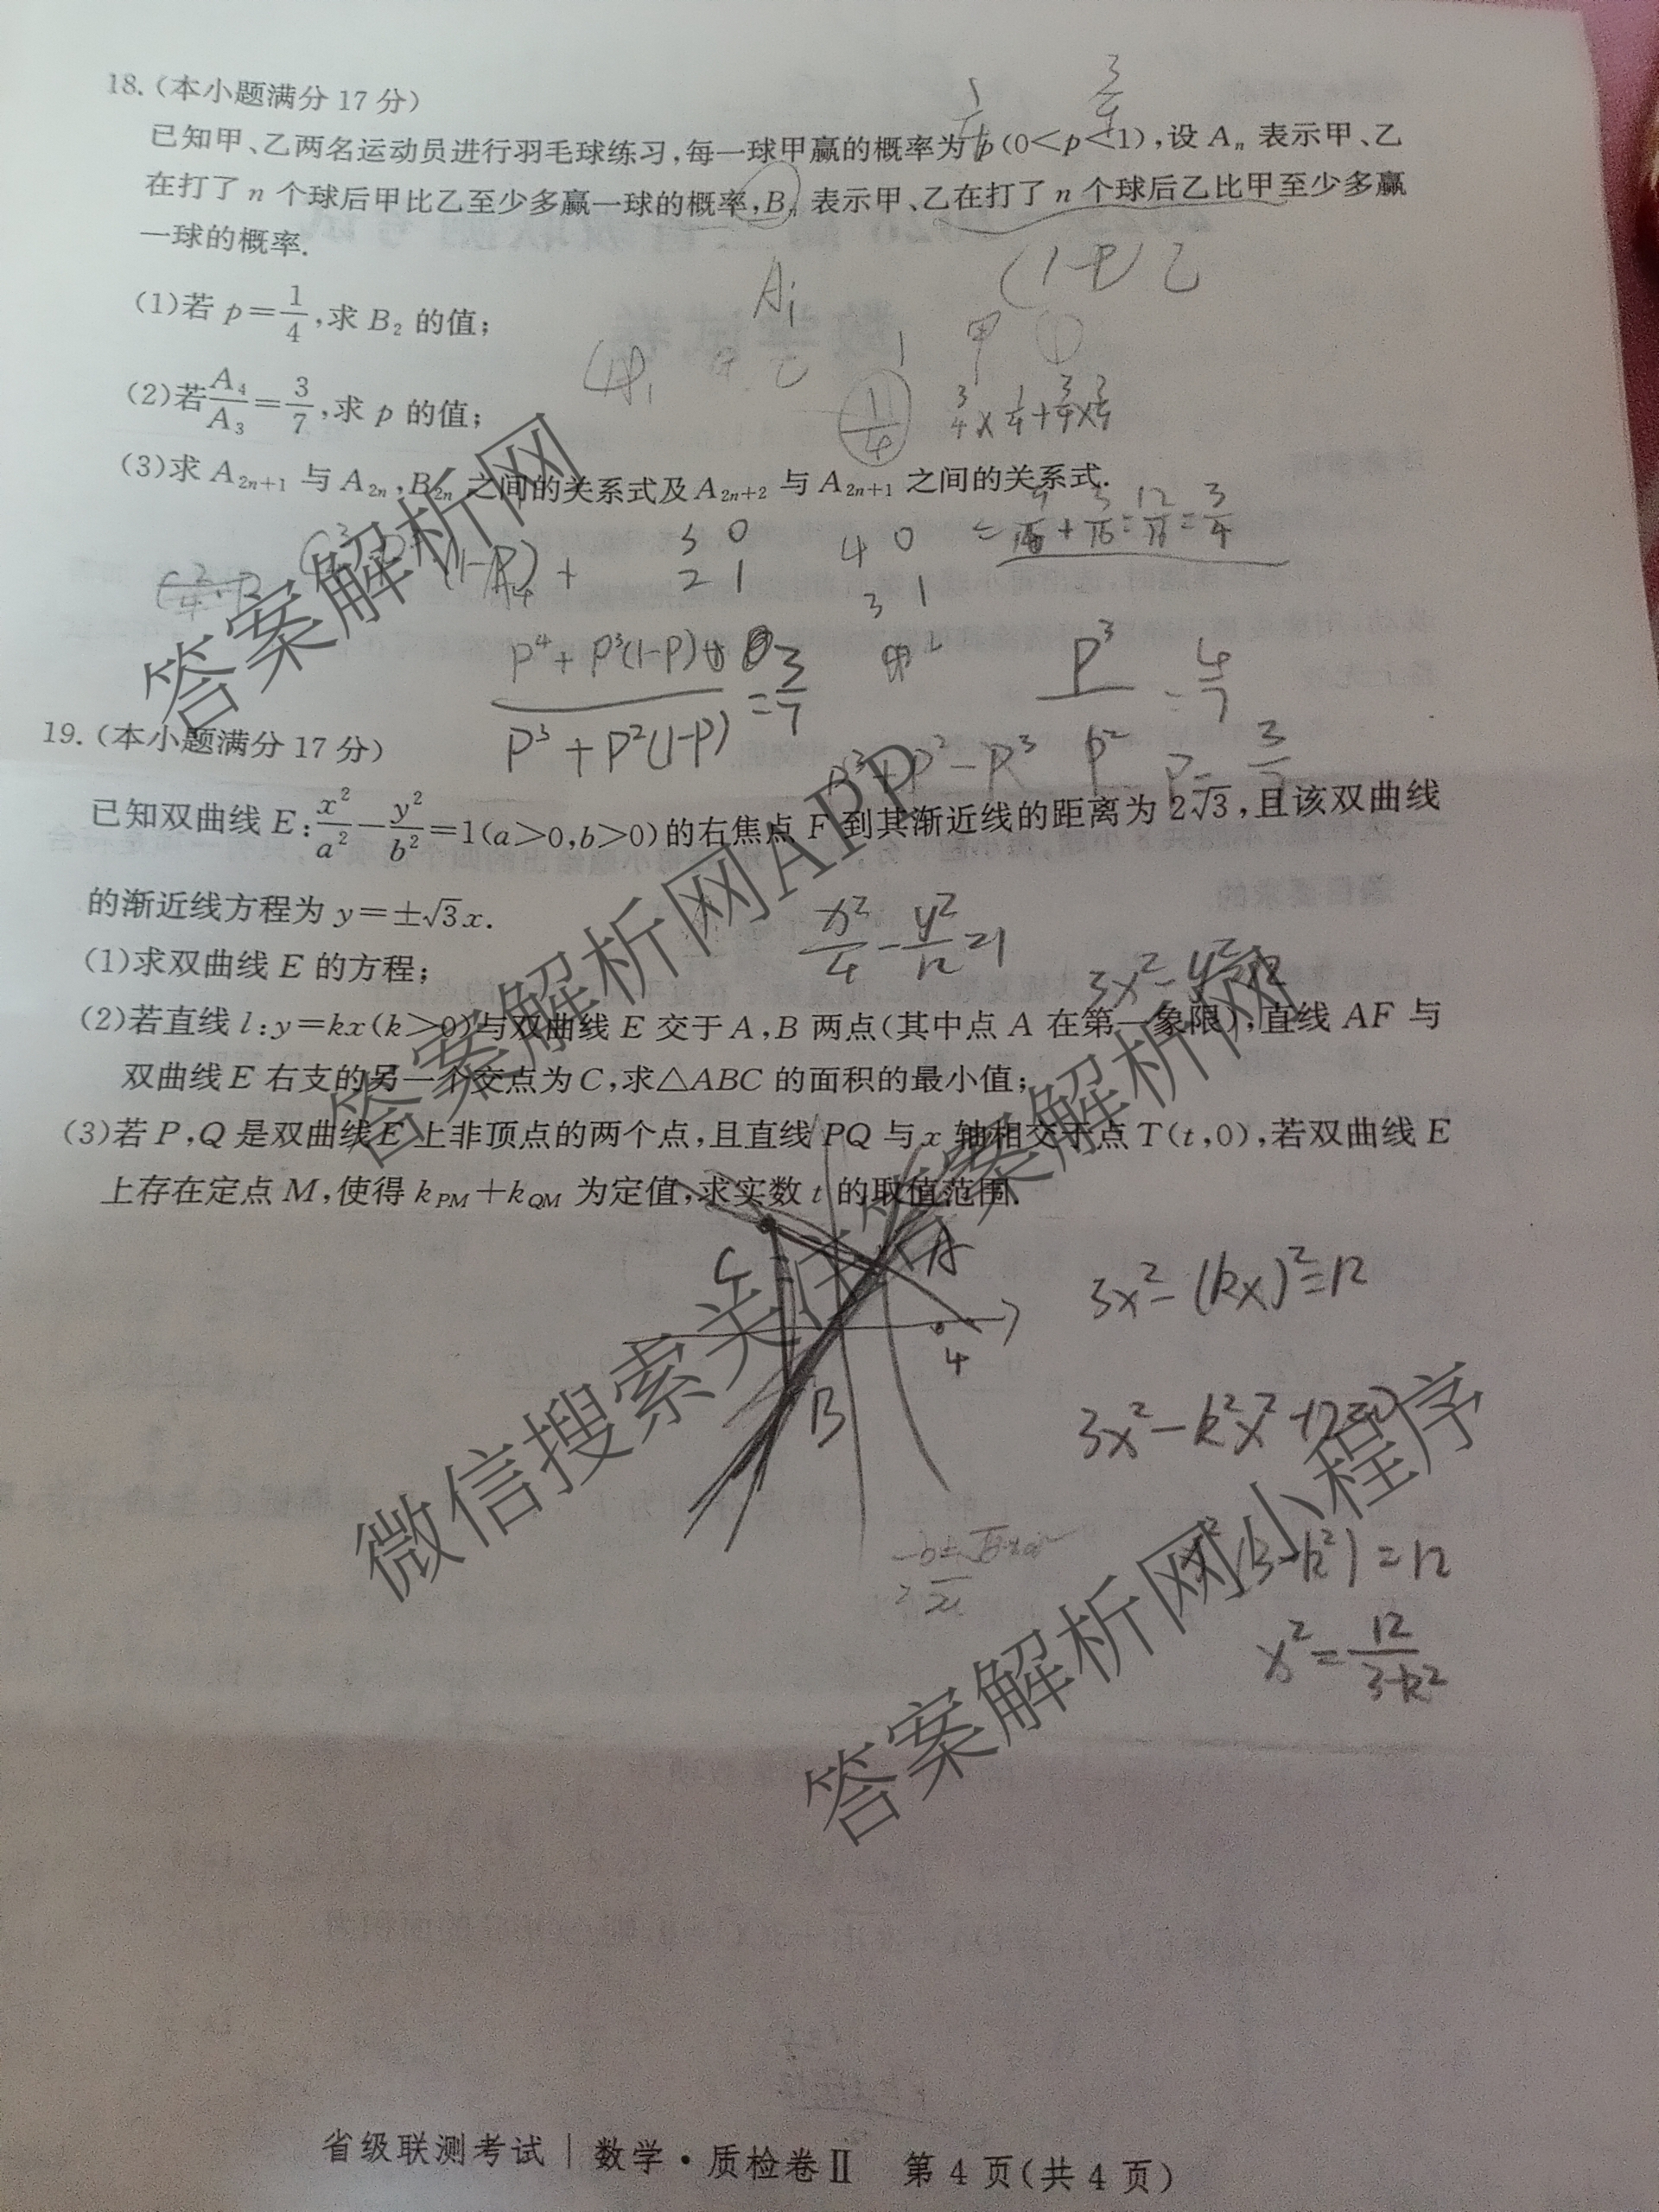 18.(本小题满分17分)
已知甲、乙两名运动员进行羽毛球练习,每一球甲赢的概率为p(0<p<1),设Aₙ表示甲、乙
在打了n个球后甲比乙至少多赢一球的概率,Bₙ表示甲、乙在打了n个球后乙比甲至少多赢
一球的概率.
(1)若p=1/4,求B₂的值;
(2)若A₄/A₃=3/7,求p的值;
(3)求A₂ₙ₊₁与A₂ₙ,B₂ₙ之间的关系式及A₂ₙ₊₂与A₂ₙ₊₁之间的关系式.
3/4
(1-P) 乙
A₁
甲
1/4
3/4×1/4+3/4×3/4
=9/16+3/16=12/16=3/4
3 0
4 0
2 1
3 1
P³+P²(1-P)
=3/7
P³
=4/7
19.(本小题满分17分)
已知双曲线E:x²/a²-y²/b²=1(a>0,b>0)的右焦点F到其渐近线的距离为2√3,且该双曲线
的渐近线方程为y=±√3x.
x²/4-y²/12=1
(1)求双曲线E的方程;
3x²-y²=12
(2)若直线l:y=kx(k>0)与双曲线E交于A,B两点(其中点A在第一象限),直线AF与
双曲线E右支的另一个交点为C,求△ABC的面积的最小值;
(3)若P,Q是双曲线E上非顶点的两个点,且直线PQ与x轴相交于点T(t,0),若双曲线E
上存在定点M,使得kPM+kQM为定值,求实数t的取值范围.
C
A
B
4
3x²-(kx)²=12
3x²-k²x²-12=0
x²(3-k²)=12
x²=12/3-k²
答案解析网
答案解析网APP
微信搜索关注答案解析网
答案解析网小程序
省级联测考试|数学·质检卷Ⅱ 第4页(共4页)